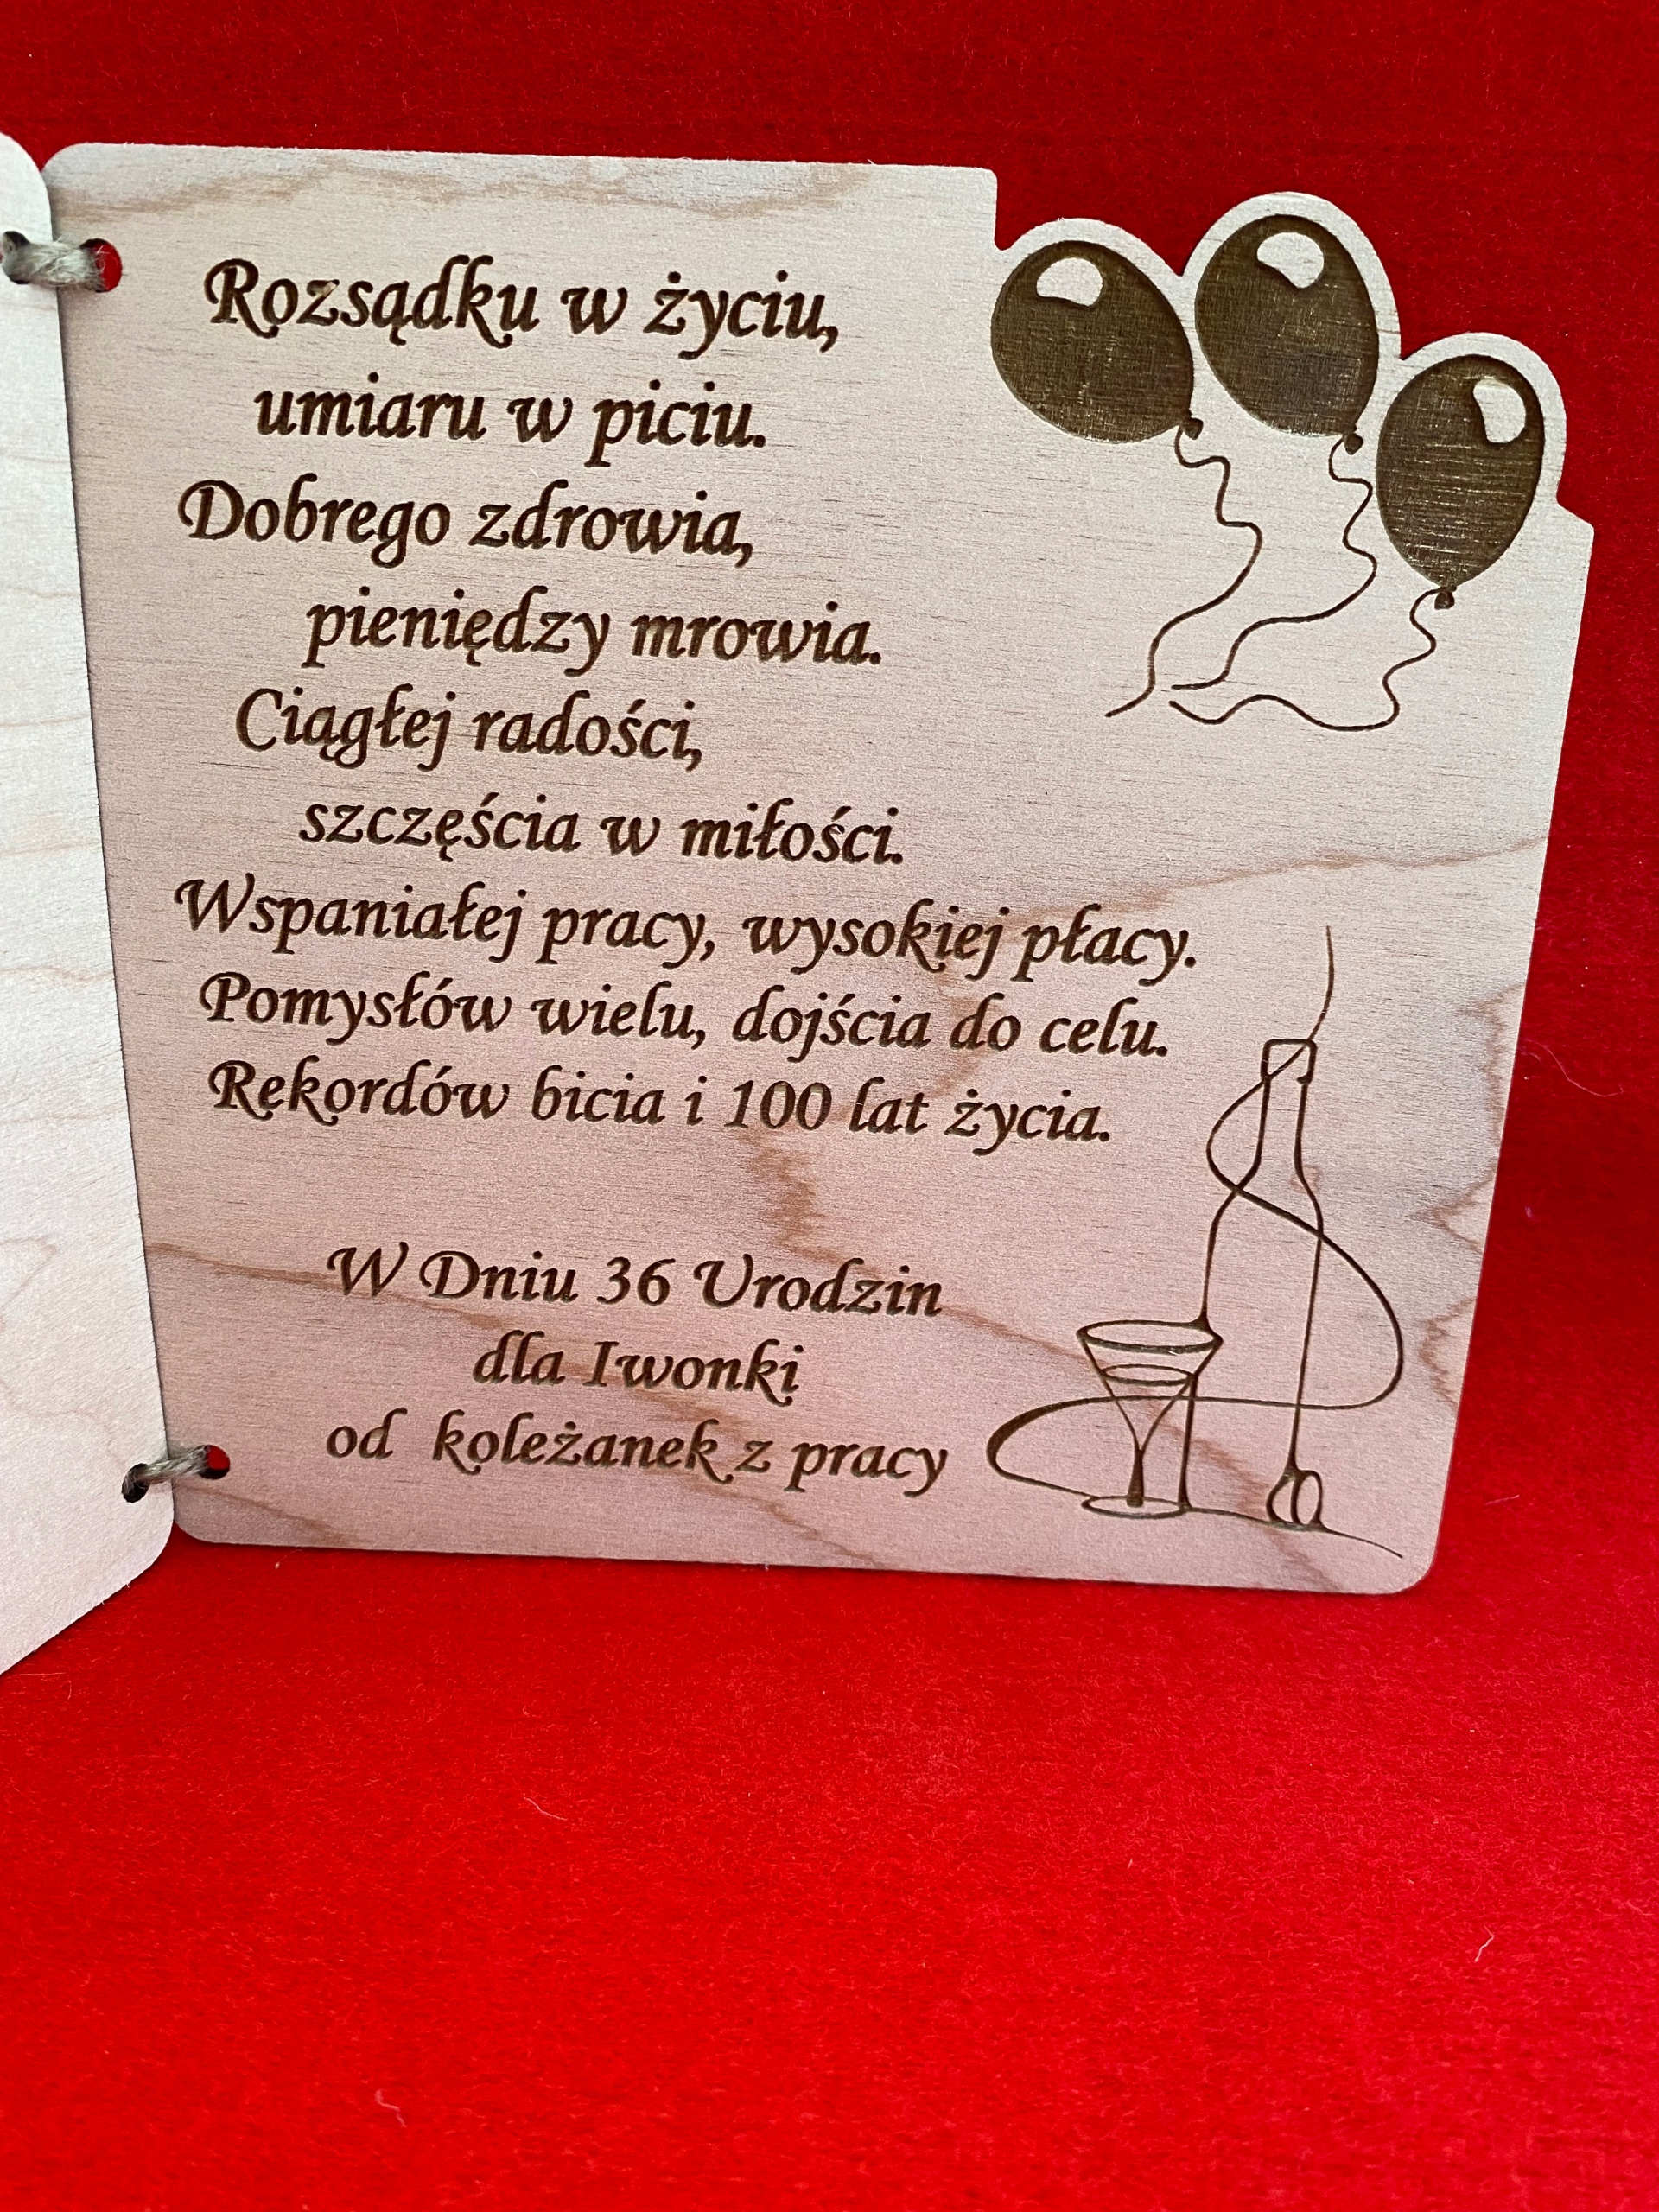 Rozsądku w życiu,
umiaru w piciu.
Dobrego zdrowia,
pieniędzy mrowia.
Ciągłej radości,
szczęścia w miłości.
Wspaniałej pracy, wysokiej płacy.
Pomysłów wielu, dojścia do celu.
Rekordów bicia i 100 lat życia.
W Dniu 36 Urodzin
dla Iwonki
od koleżanek z pracy